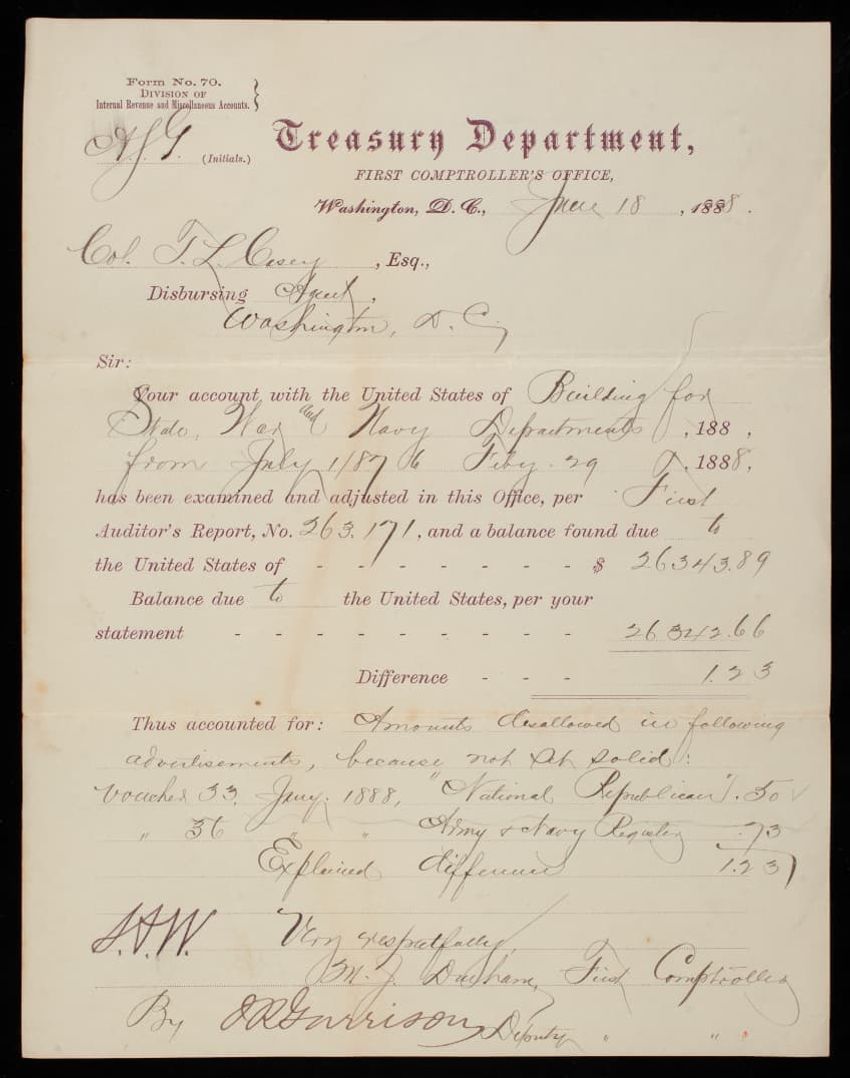 Form No. 70.
DIVISION OF
Internal Revenue and Miscellaneous Accounts.
A.J.G. (Initials.)
Treasury Department,
FIRST COMPTROLLER'S OFFICE,
Washington, D. C., June 18, 1888.
Col. T. L. Casey, Esq.,
Disbursing Agent,
Washington, D. C.
Sir:
Your account with the United States of Building for
State, War and Navy Departments, 188 ,
from July 1/87 to Feby. 29, 1888,
has been examined and adjusted in this Office, per First
Auditor's Report, No. 263.171, and a balance found due to
the United States of - - - - - - - $ 26343.89
Balance due to the United States, per your
statement - - - - - - - - - 26342.66
Difference - - - 1.23
Thus accounted for: Amounts disallowed in following
advertisements, because not set solid:
Voucher 33. Jany. 1888, "National Republican" .50
" 36 " " Army & Navy Register .73
Explained difference 1.23
S.A.W. Very respectfully,
M. J. Durham, First Comptroller
By J R Garrison, Deputy " "